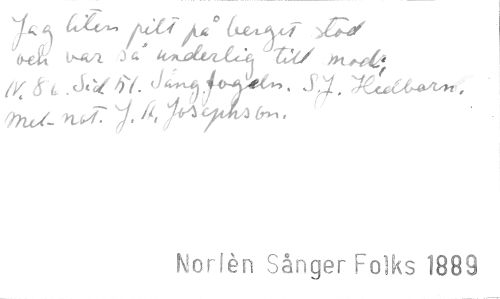 Jag liten pilt på berget stod
och var så underlig till mod;
IV. 8 u. Sid 51. Sångfogeln. S. J. Hedborn.
Mel-not. J. A. Josephson.
Norlèn Sånger Folks 1889